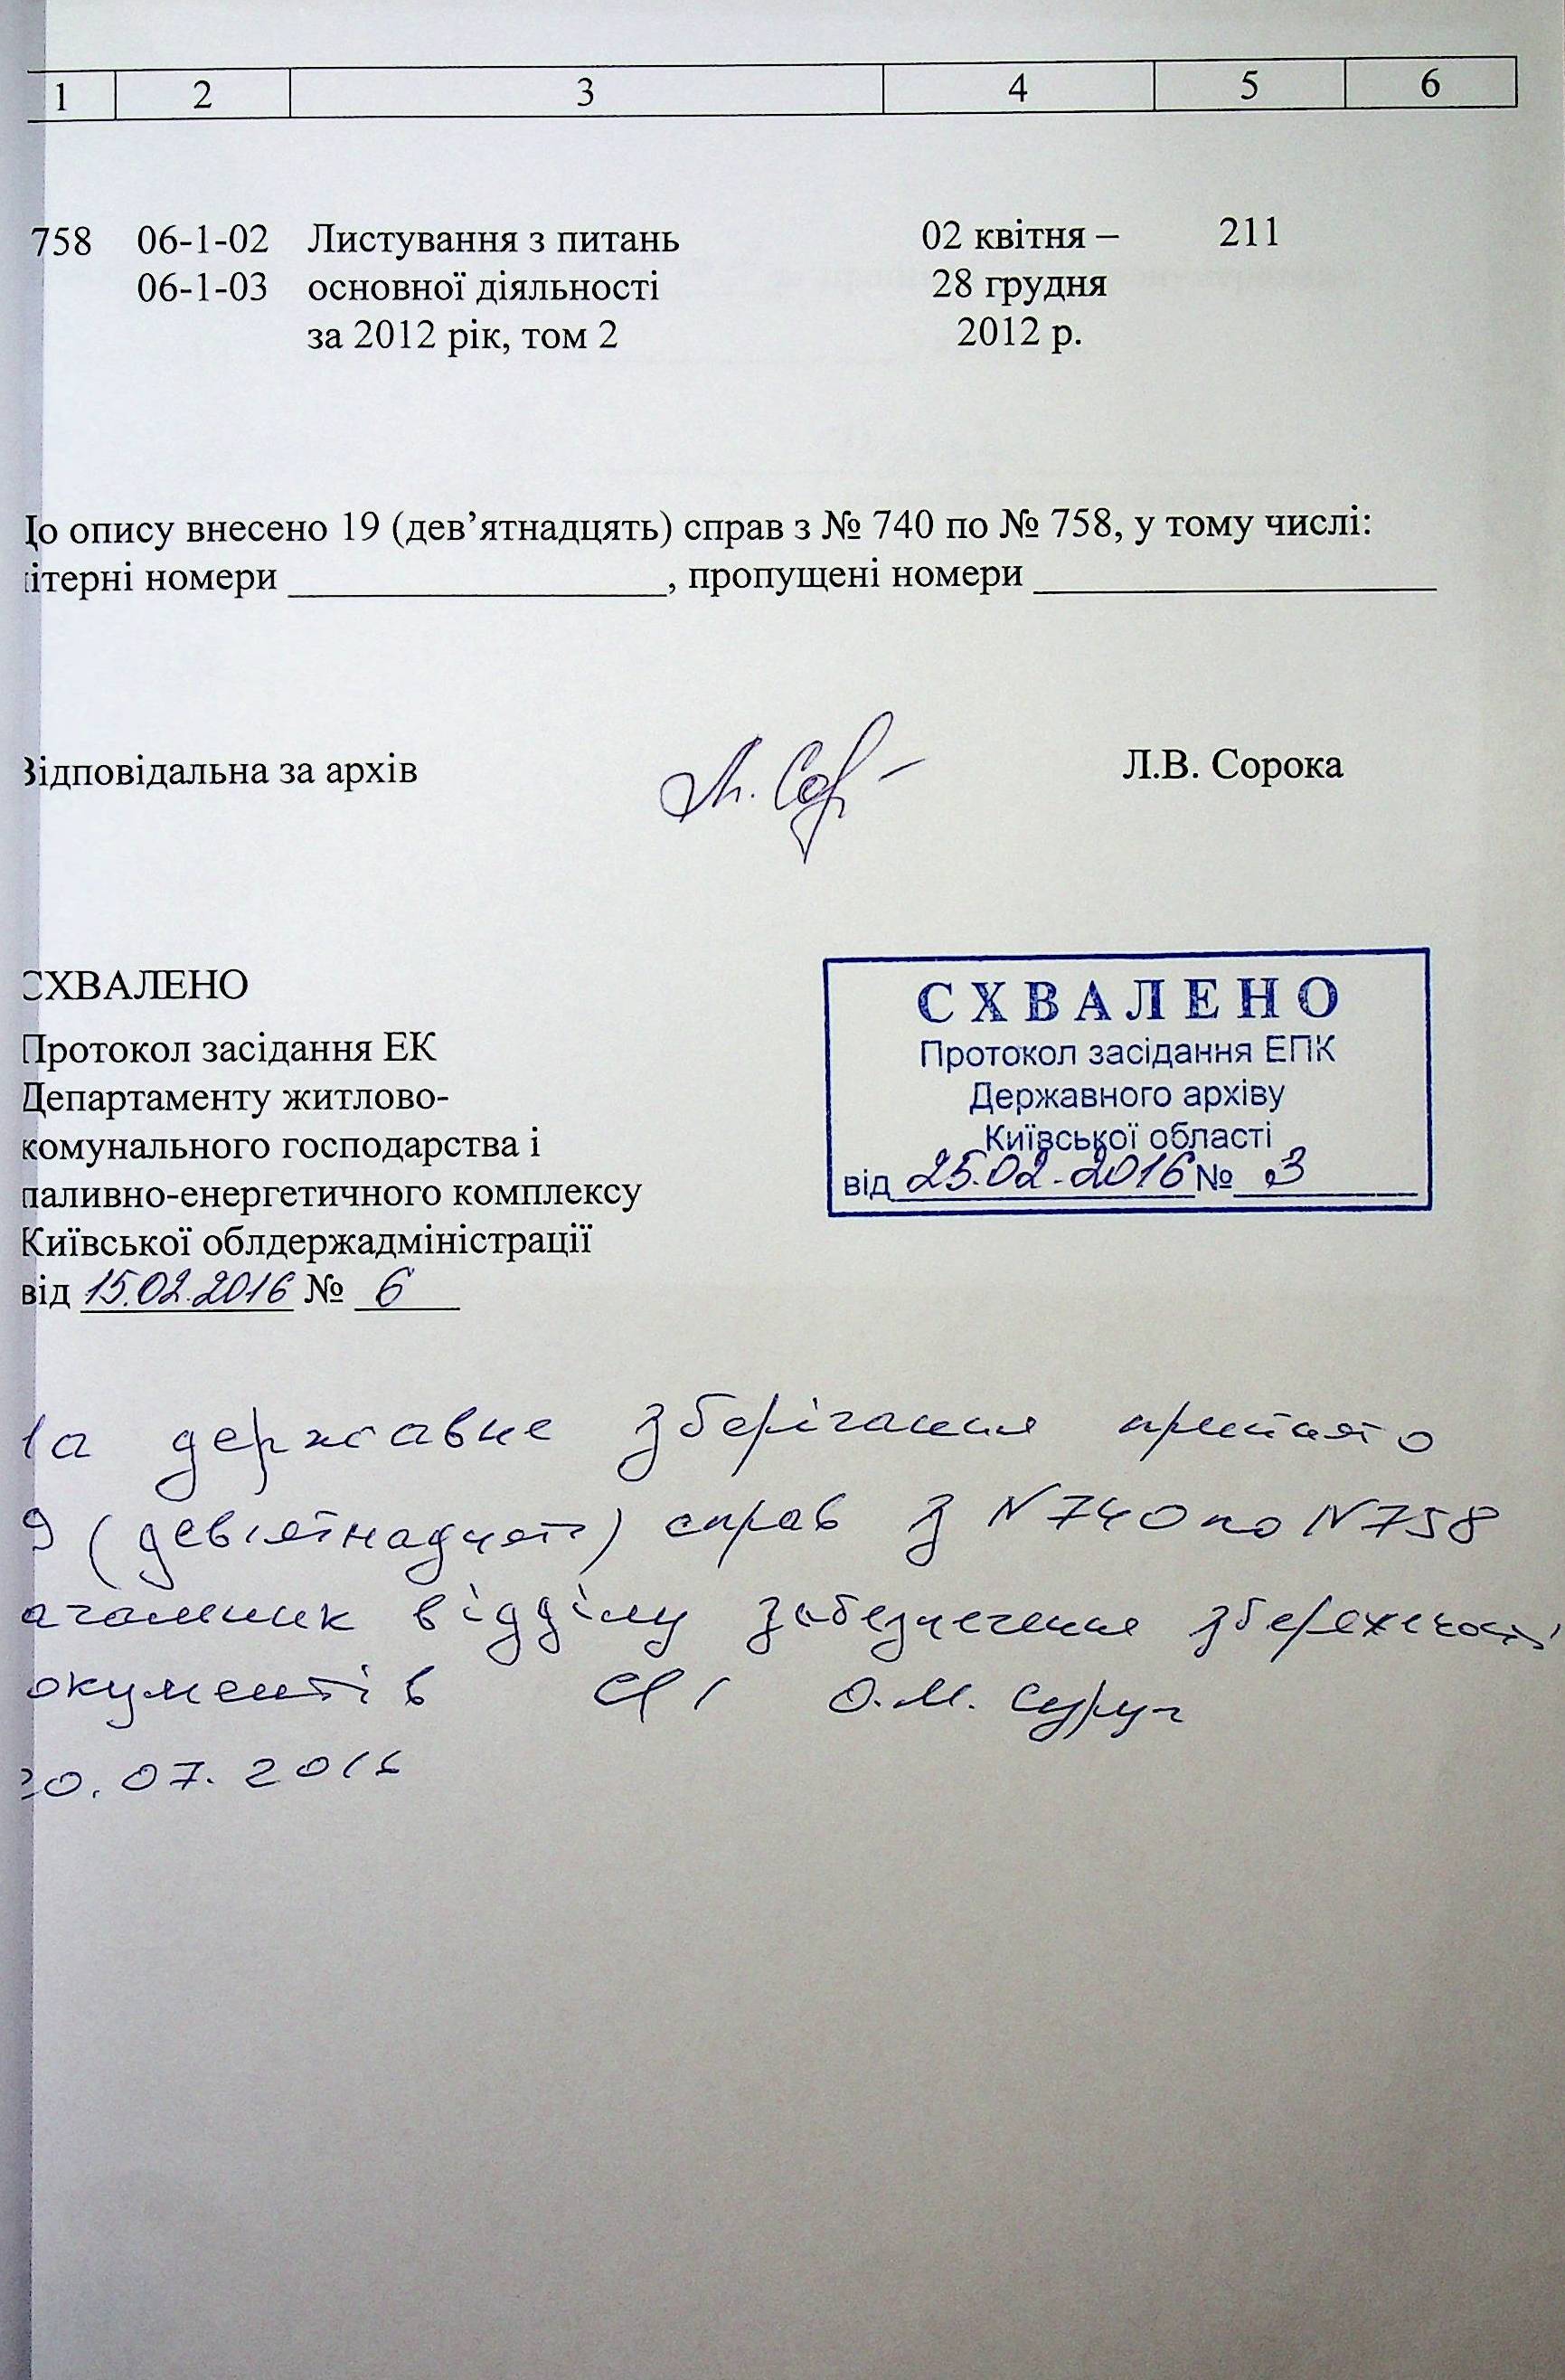 1 2 3 4 5 6
758 06-1-02 Листування з питань 02 квітня – 211
06-1-03 основної діяльності 28 грудня
за 2012 рік, том 2 2012 р.
До опису внесено 19 (дев’ятнадцять) справ з № 740 по № 758, у тому числі:
літерні номери , пропущені номери
Відповідальна за архів Л. Сор Л.В. Сорока
СХВАЛЕНО
Протокол засідання ЕК
Департаменту житлово-
комунального господарства і
паливно-енергетичного комплексу
Київської облдержадміністрації
від 15.02.2016 № 6
СХВАЛЕНО
Протокол засідання ЕПК
Державного архіву
Київської області
від 25.02.2016 № 3
На державне зберігання прийнято
9 (дев'ятнадцять) справ з N 740 по N 758
ачальник відділу забезпечення збереженості
окументів О.М. Суруч
20.07.2016